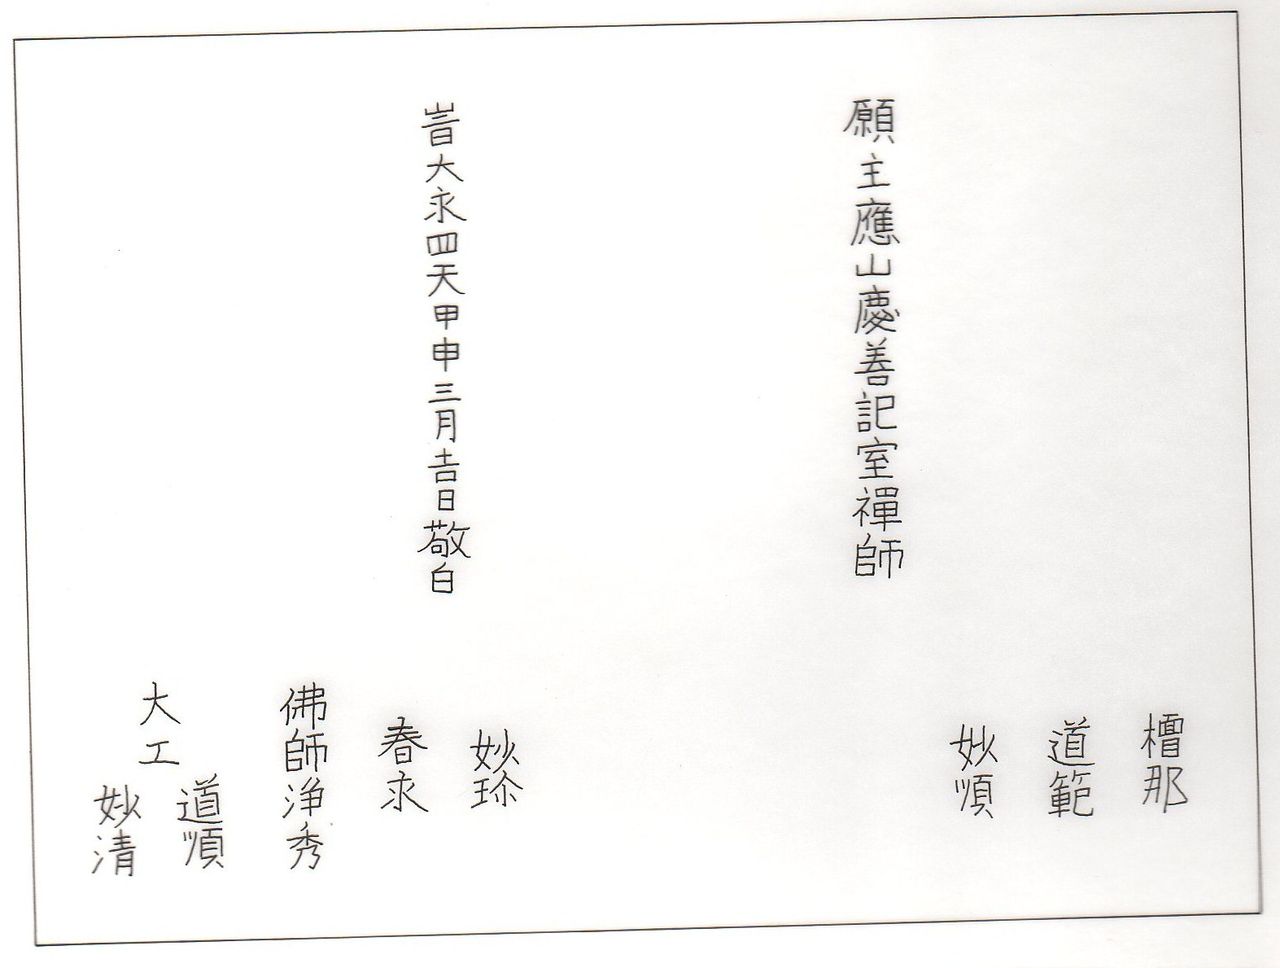 橧那
道範
妙順
願主應山慶善記室禪師
妙珎
旹大永四天甲申三月吉日敬白
春永
佛師浄秀
大工
道順
妙清